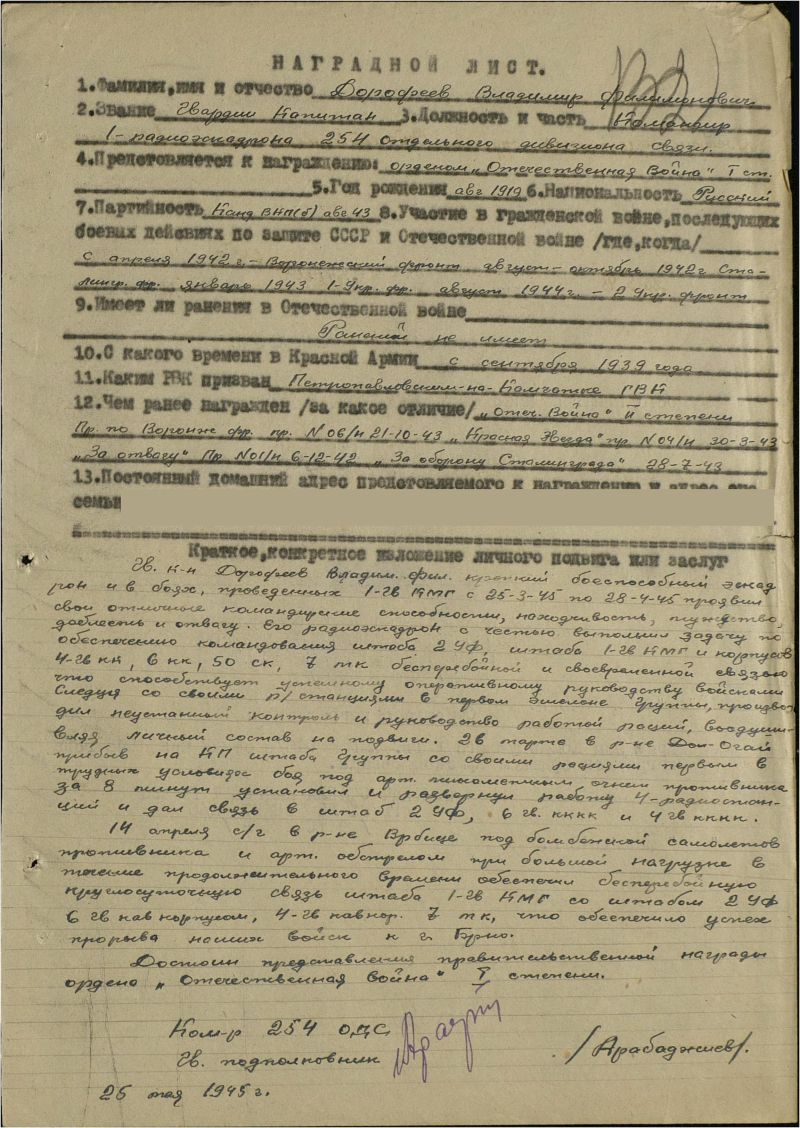 НАГРАДНОЙ ЛИСТ.
1.Фамилия,имя и отчество Дорофеев Владимир Филимонович
2.Звание Гвардии Капитан 3.Должность и часть Командир
1-радиоэскадрона 254 отдельного дивизиона связи.
4.Представляется к награждению: орденом „Отечественная Война" I ст.
5.Год рождения авг 1919 6.Национальность Русский
7.Партийность Канд ВКП(б) авг 43 8.Участие в Гражданской войне,последующих
боевых действиях по защите СССР и Отечественной войне /где,когда/
с апреля 1942 г.- Воронежский фронт август - октябрь 1942 г Ста-
лингр. фр. январь 1943 1-Укр. фр. август 1944 г. - 2 Укр. фронт
9.Имеет ли ранения в Отечественной войне
Ранений не имеет
10.С какого времени в Красной Армии с сентября 1939 года
11.Каким РВК призван Петропавловским-на-Камчатке ГВК
12.Чем ранее награжден /за какое отличие/ „Отеч. Война" II степени
Пр. по Воронж фр. пр. N 06/н 21-10-43 „Красная Звезда" пр N 04/н 30-3-43
„За отвагу" Пр N 01/н 6-12-42 „За оборону Сталинграда" 28-7-43
13.Постоянный домашний адрес представляемого к награждению и адрес его
семьи
Краткое,конкретное изложение личного подвига или заслуг
Гв. к-н Дорофеев Владим. Фил. крепкий боеспособный эскад
рон и в боях, проведенных 1-гв КМГ с 25-3-45 по 28-4-45 проявил
свои отличные командирские способности, находчивость, мужество,
доблесть и отвагу. Его радиоэскадрон с честью выполнил задачу по
обеспечению командования штаба 2 УФ, штаба 1-гв КМГ и корпусов
4-гв кк, 6 кк, 50 ск, 7 мк бесперебойной и своевременной связью
что способствует успешному оперативному руководству войсками
Следуя со своими р/станциями в первом эшелоне Группы, произво-
дил неустанный контроль и руководство работой раций, воодушев-
вляя личный состав на подвиги. 26 марта в р-не Дон-Огай
прибыв на КП штаба Группы со своими рациями первым в
трудных условиях боя под арт. пулеметным огнем противника
за 8 минут установил и развернул работу 4-радиостан-
ций и дал связь в штаб 2 УФ, 6 гв. кккк и 4 гв кккк.
14 апреля с/г в р-не Врбице под бомбежкой самолетов
противника и арт. обстрелом при большой нагрузке в
течение продолжительного времени обеспечил бесперебойную
круглосуточную связь штаба 1-гв КМГ со штабом 2 УФ
6 гв кавкорпусом, 4-гв кавкор. 7 мк, что обеспечило успех
прорыва наших войск к г. Брно.
Достоин представления правительственной награды
ордена „Отечественная война" I степени.
Ком-р 254 ОДС
Гв. подполковник /Арабаджиев/.
25 мая 1945 г.